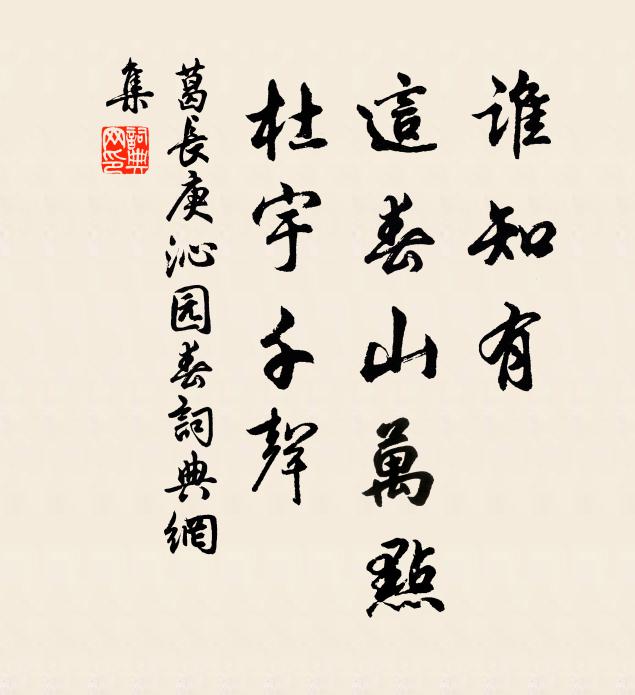 誰知有
這春山萬點
杜宇千聲
葛長庚沁园春詞典網
集
詞典
网印